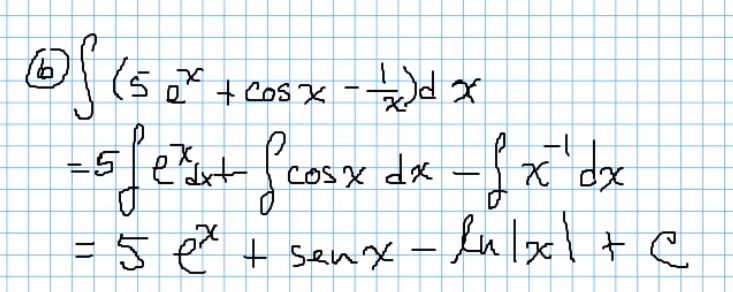 (b) ∫ (5 e^x + cos x - 1/x) d x
= 5 ∫ e^x dx + ∫ cos x dx - ∫ x^-1 dx
= 5 e^x + sen x - ln |x| + C